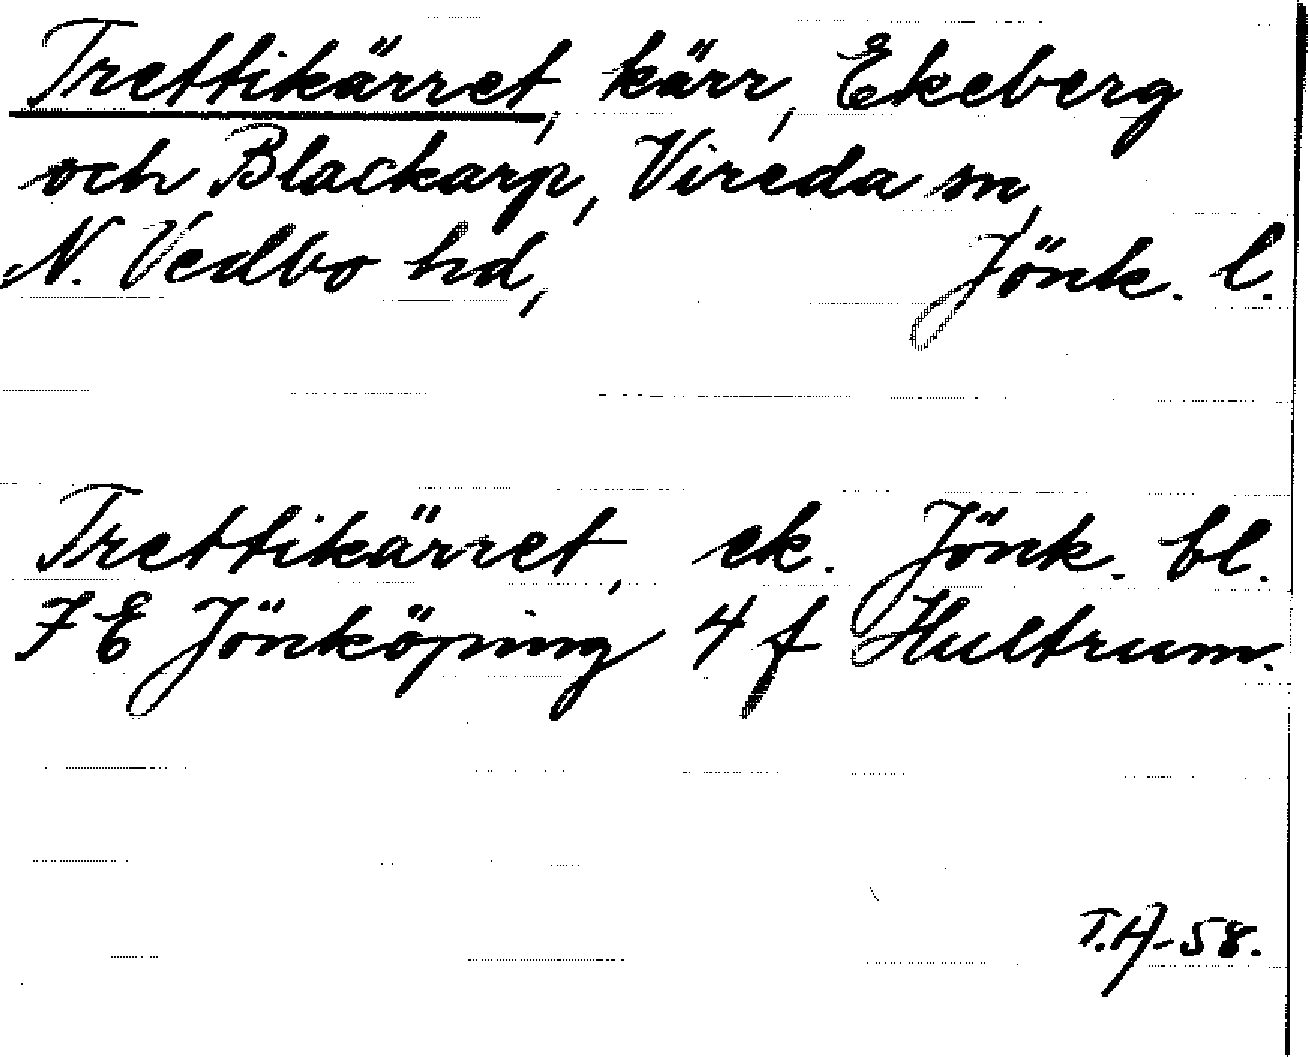 Trettikärret, kärr, Ekeberg
och Blackarp, Vireda sn,
N. Vedbo hd, Jönk. l.
Trettikärret, ek. Jönk. bl.
7 E Jönköping 4 f Hultrum.
T.A-58.